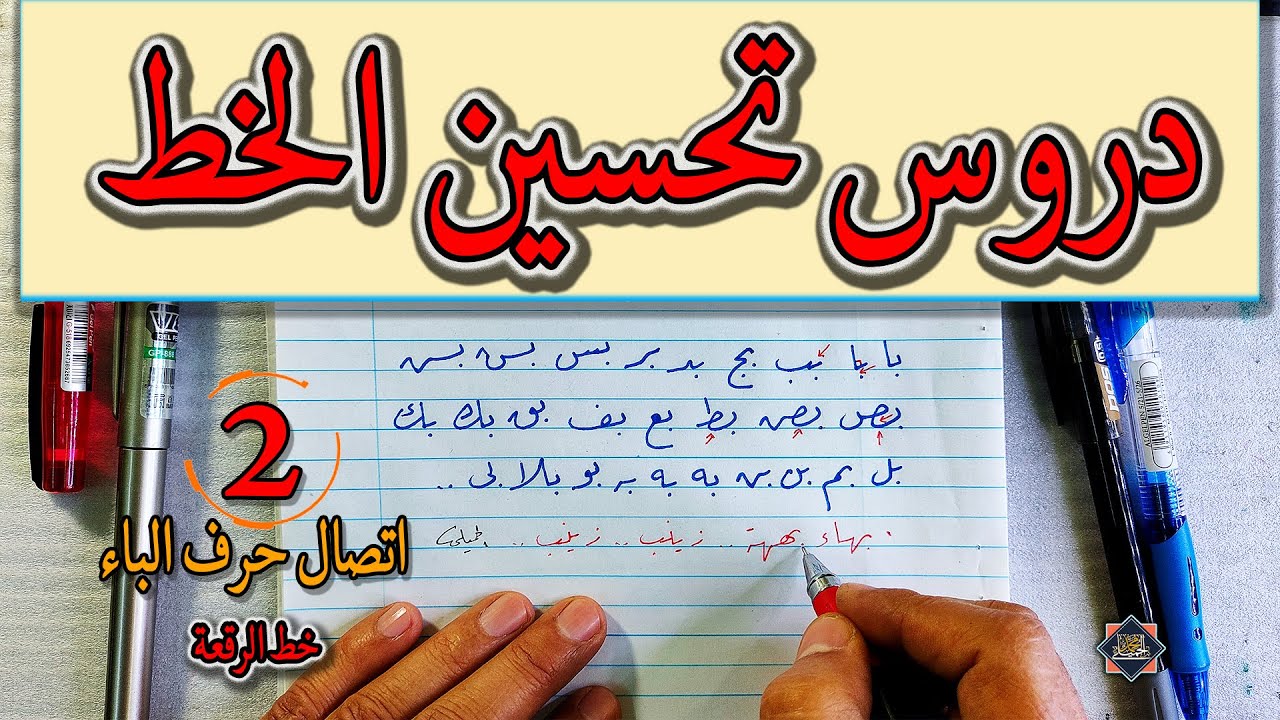 دروس تحسين الخط
با با بب بج بد بر بس بس بس
بص بص بط بع بف بق بك بك
بل بم بن بن به به بر بو بلا بى ..
بهاء بهمة .. زينب .. زينب ..
2
اتصال حرف الباء
خط الرقعة